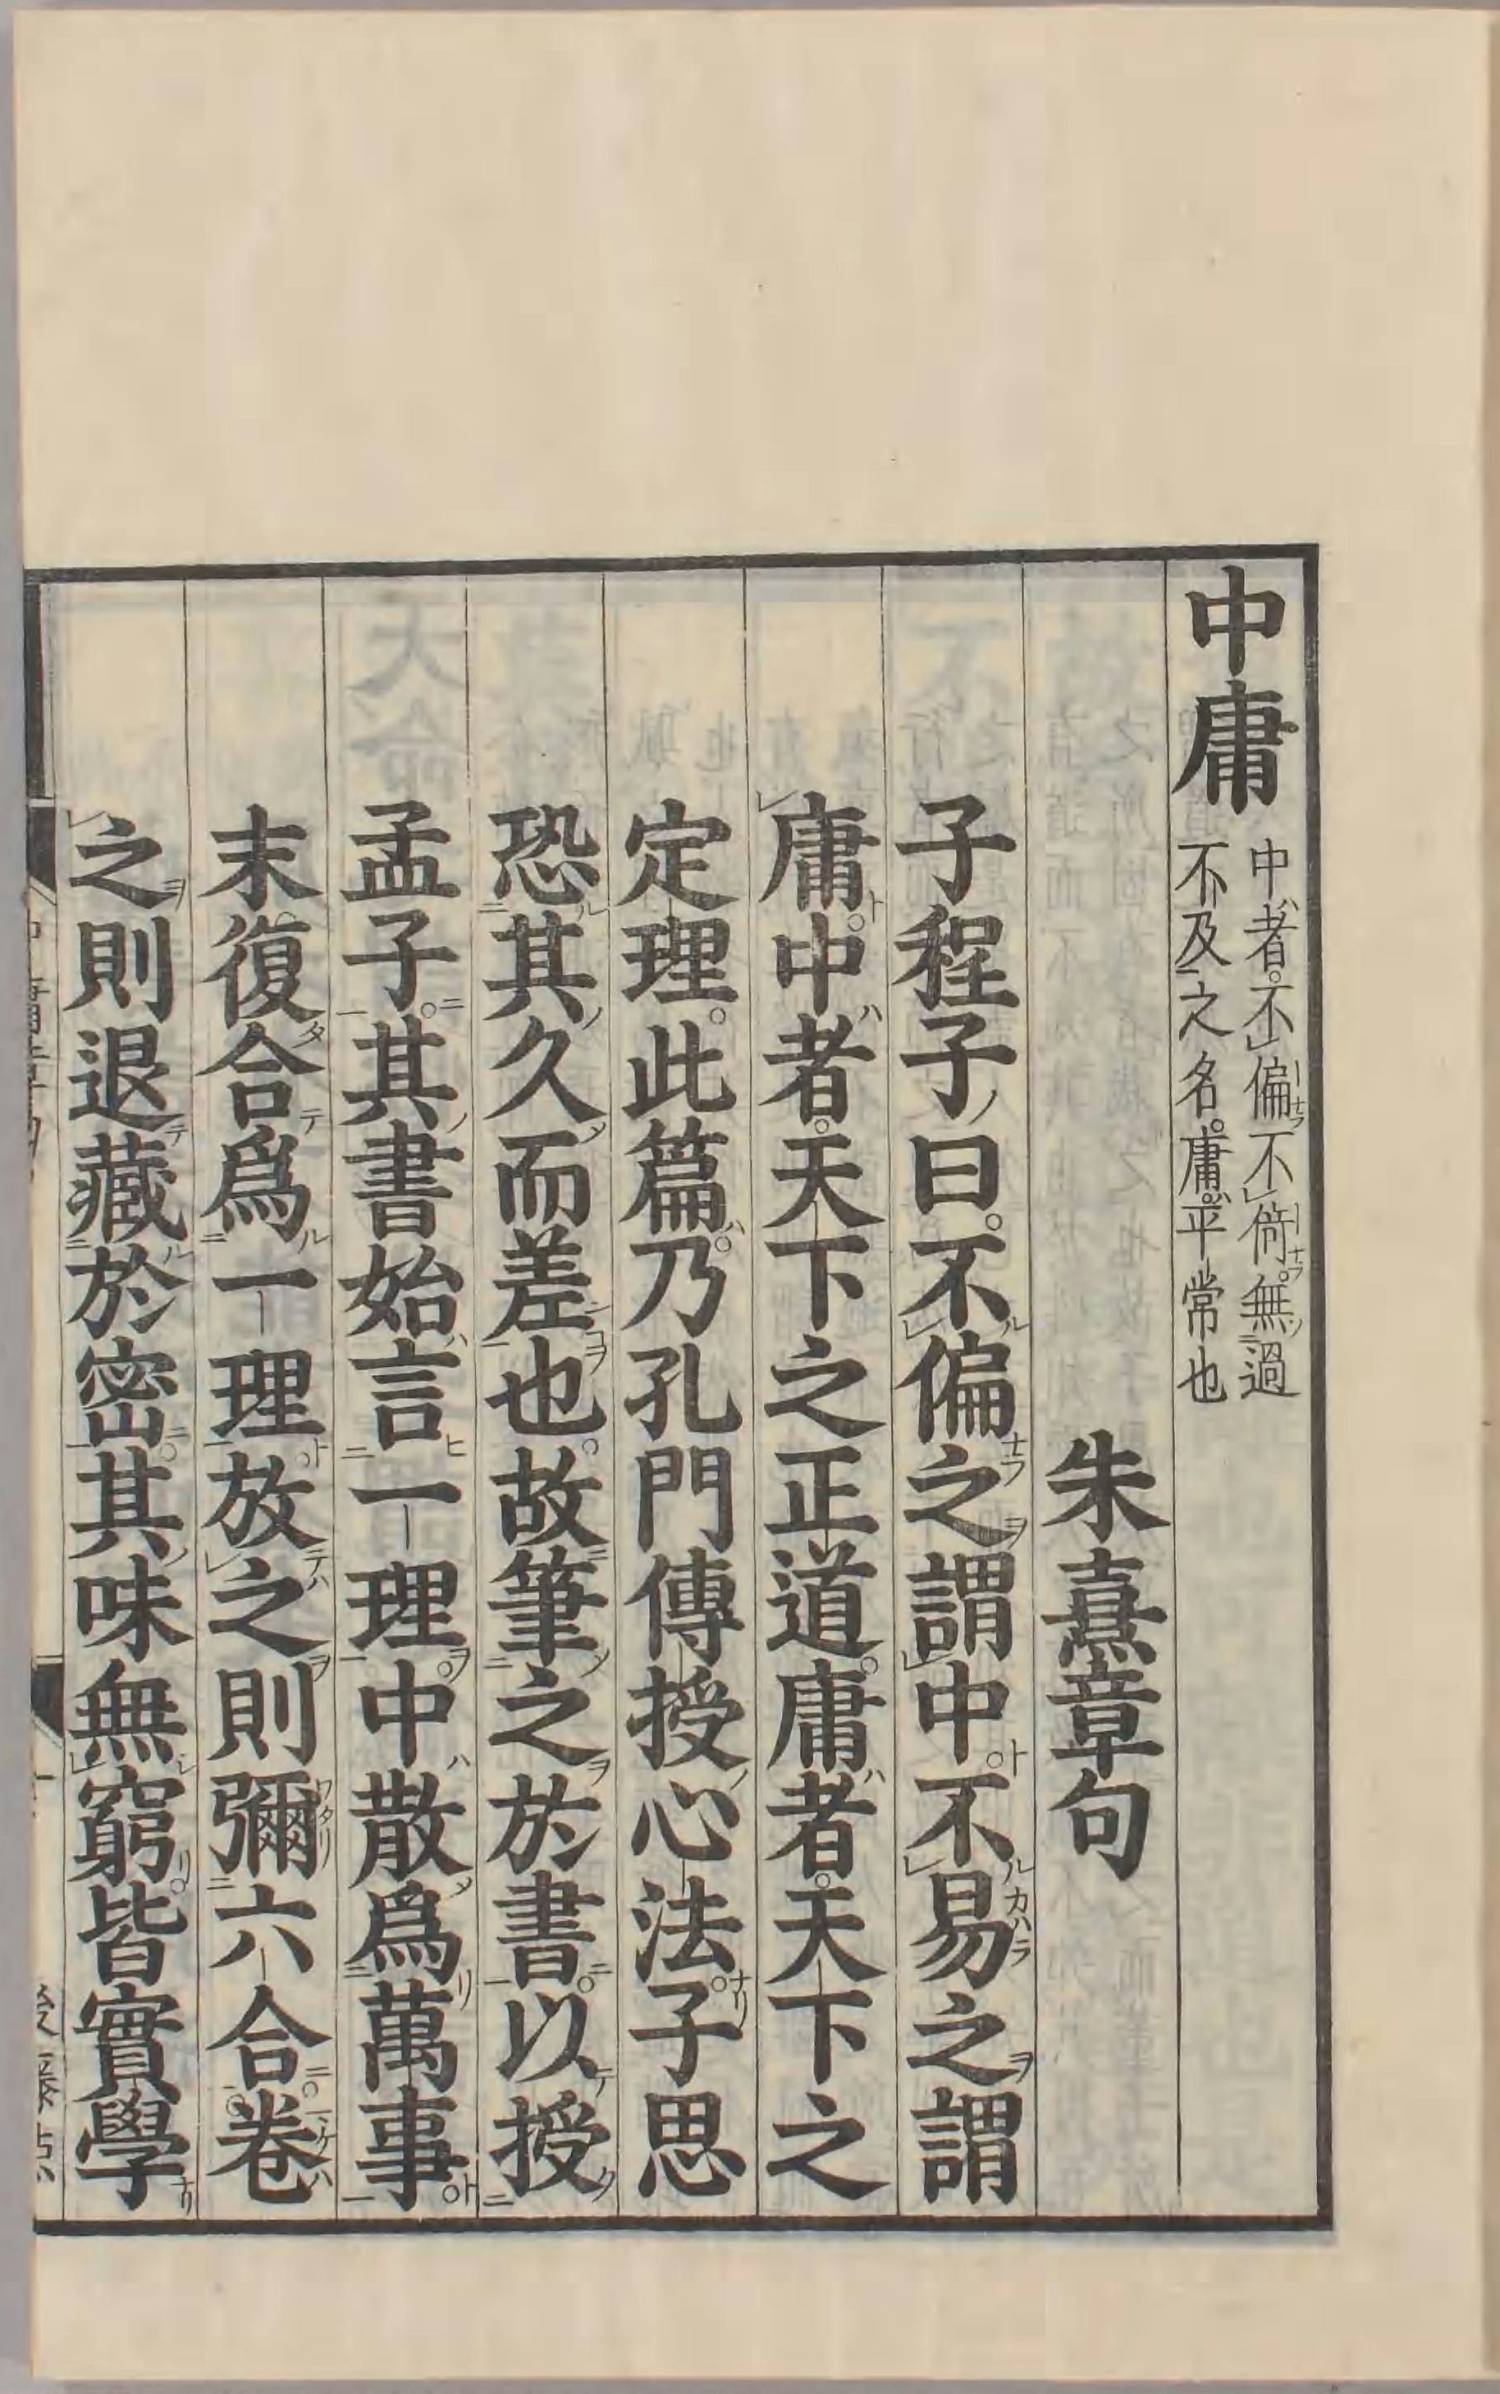 中庸
中者。不偏不倚。無過
不及之名。庸。平常也
朱熹章句
子程子曰。不偏之謂中。不易之謂
庸。中者。天下之正道。庸者。天下之
定理。此篇。乃孔門傳授心法。子思
恐其久而差也。故筆之於書。以授
孟子。其書始言一理。中散爲萬事。
末復合爲一理。放之則彌六合。卷
之則退藏於密。其味無窮。皆實學